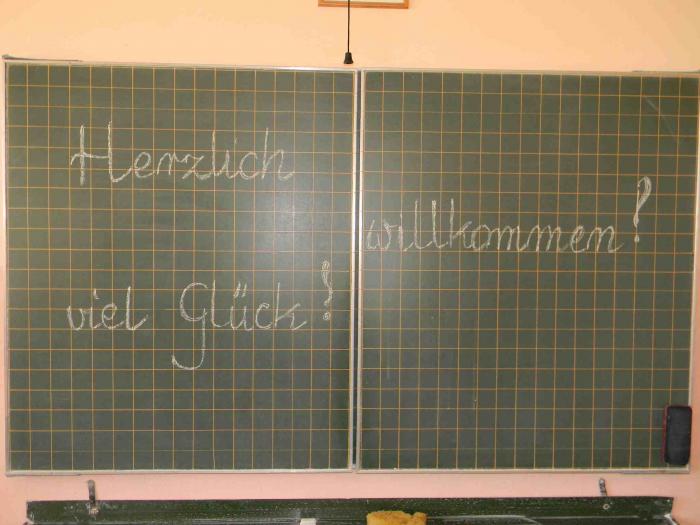 Herzlich
willkommen!
viel Glück!